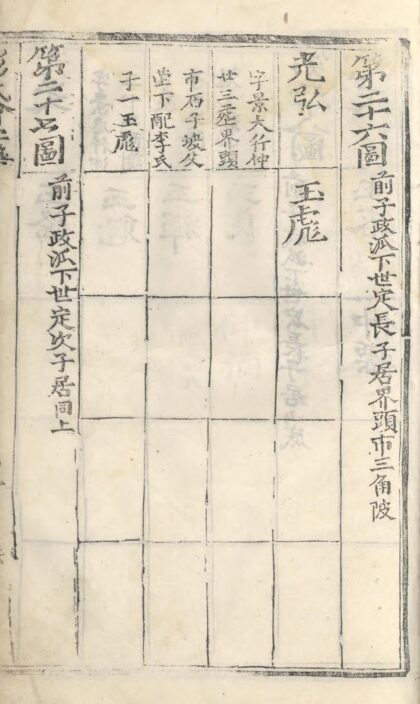 第二十六圖 前子政派下世定長子居界頭市三角陂
光弘 玉彪
字景大行仲
廿三葬界頭
市石子坡父
塋下配李氏
子一玉彪
第二十七圖 前子政派下世定次子居同上